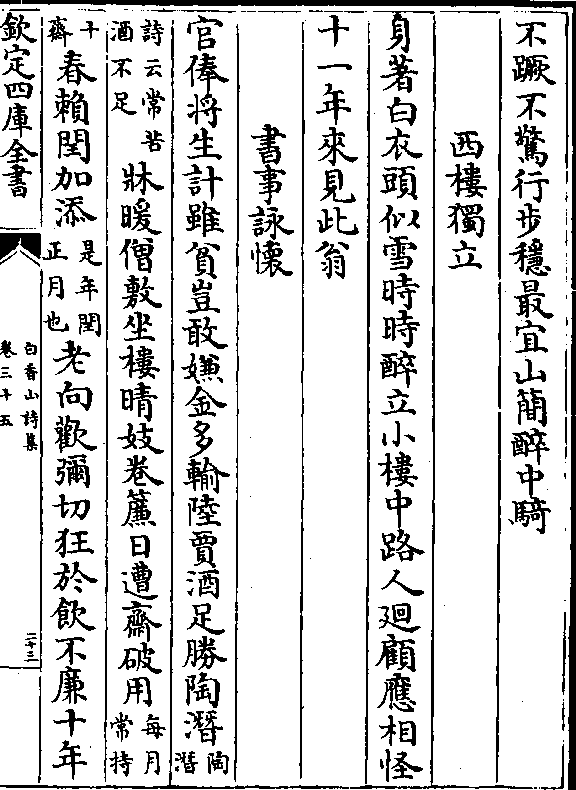 不蹶不驚行步穩最宜山簡醉中騎
西樓獨立
身著白衣頭似雪時時醉立小樓中路人廻顧應相怪
十一年來見此翁
書事詠懷
官俸將生計雖貧豈敢嫌金多輸陸賈酒足勝陶潛陶潛
詩云常苦酒不足牀暖僧敷坐樓晴妓卷簾日遭齋破用每月常持
十齋春賴閏加添是年閏正月也老向歡彌切狂於飲不廉十年
欽定四庫全書
白香山詩集
卷三十五
二十三